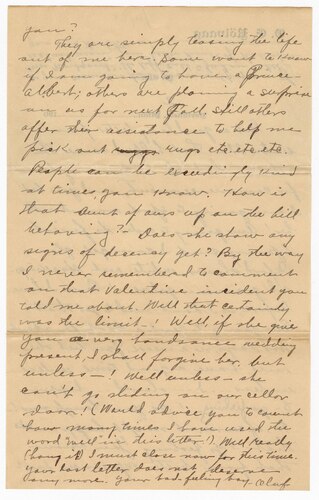 you?
They are simply teasing the life
out of me here. Some want to know
if I am going to have a Prince
Albert; others are planing a surprise
on us for next Fall still others
offer their assistance to help me
pick out rugs etc. etc. etc.
People can be exceedingly kind
at times, you know. How is
that Aunt of ours up on the hill
behaving? Does she show any
signs of desency yet? By the way
I never remembered to comment
on that Valentine incident you
told me about. Well that certainly
was the limit! Well, if she give
you a very handsome wedding
present I shall forgive her, but
unless—! Well unless— she
can't go sliding on our cellar
door! (Would advise you to count
how many times I have used the
word "well" in this letter!) Well Really
(hang it) I must close now for this time.
Your last letter does not deserve
any more. Your bad feeling boy, Oluf